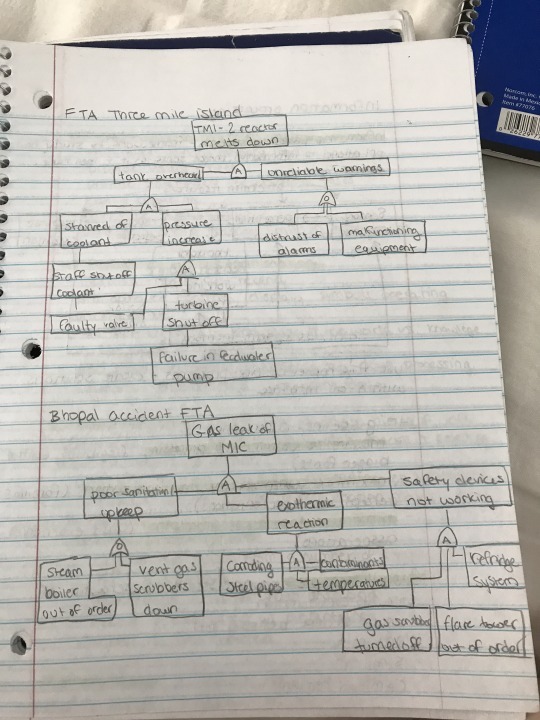 FTA Three mile island
TMI-2 reactor
melts down
tank overheats
A
unreliable warnings
A
O
starved of
coolant
pressure
increase
distrust of
alarms
malfunctioning
equipment
staff shut off
coolant
A
faulty valve
turbine
shut off
Failure in feedwater
pump
Bhopal accident FTA
Gas leak of
MIC
poor sanitation
upkeep
A
exothermic
reaction
safety devices
not working
O
A
A
steam
boiler
out of order
vent gas
scrubbers
down
Corroding
steel pipe
contaminants
temperatures
refridge
system
gas scrubber
turned off
flare tower
out of order
Norcom, Inc.
Made in Mexico
Item #77076